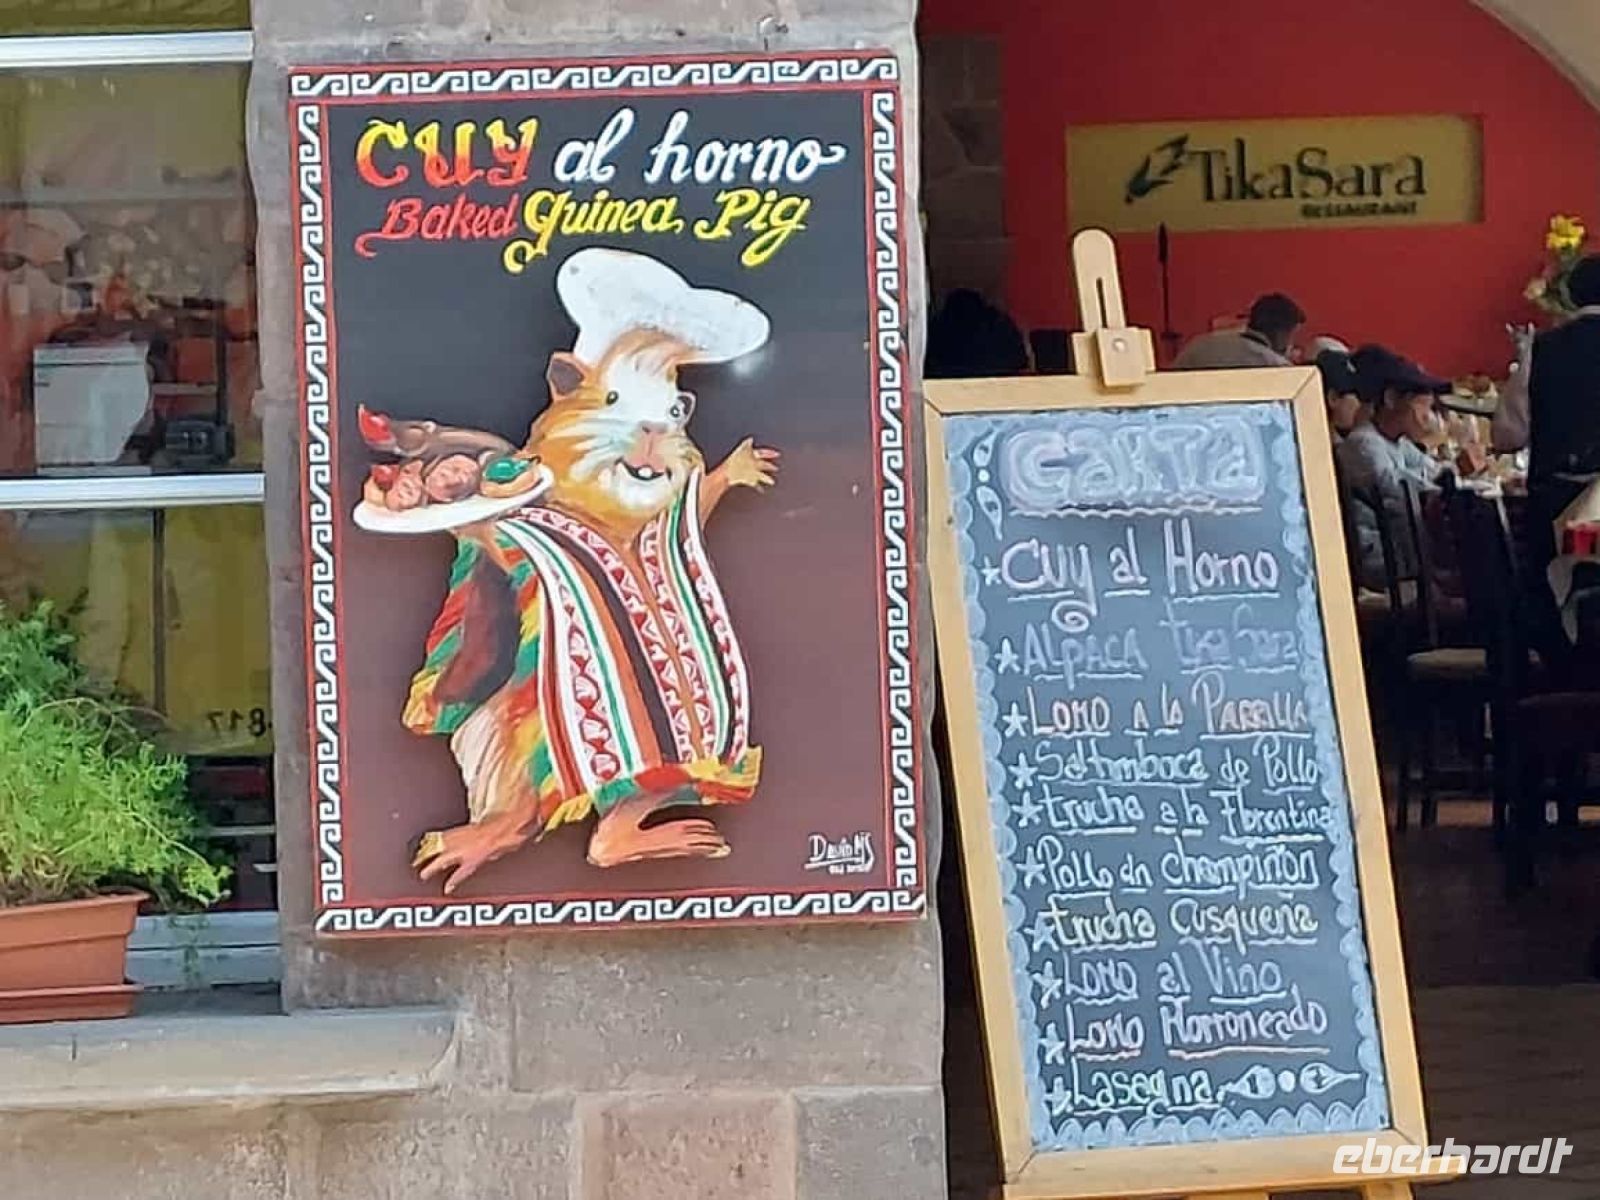 Cuy al horno
Baked Guinea Pig
David MS
TikaSara
RESTAURANT
CARTA
Cuy al Horno
ALPACA Tika Sara
LOMO A LA PARRILLA
Saltimboca de Pollo
trucha a la Florentina
Pollo en champiñon
trucha Cusqueña
LOMO al Vino
LOMO Morroneado
LASEGNA
817
eberhardt